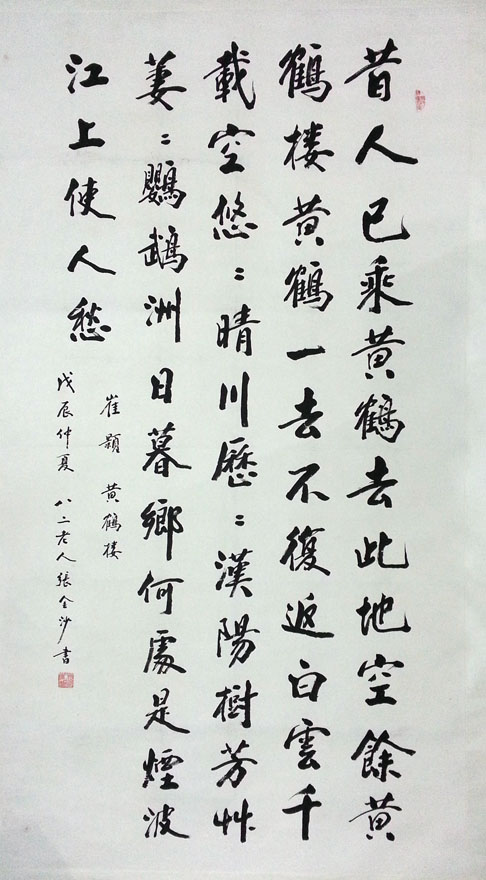 昔人已乘黄鶴去此地空餘黄
鶴楼黄鶴一去不復返白雲千
載空悠〻晴川歷〻漢陽樹芳艸
萋〻鸚鵡洲日暮鄉何處是煙波
江上使人愁
崔顥 黄鶴楼
戊辰仲夏 八二老人張金沙書